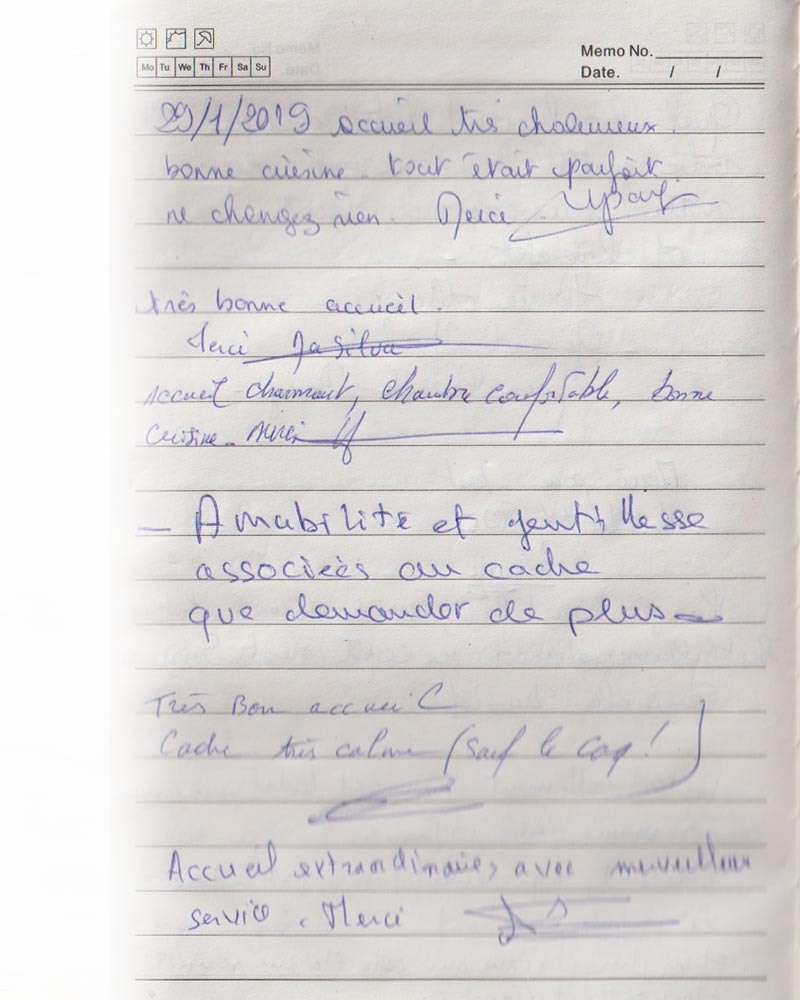 Memo No.
Mo Tu We Th Fr Sa Su
Date. / /
29/1/2019 accueil très chaleureux.
bonne cuisine. tout était parfait.
ne changez rien. Merci
très bonne accueil.
Merci Da Silva
Accueil charmant, chambre confortable, bonne
cuisine. Merci
– Amabilité et gentillesse
associées au cadre
que demander de plus
Très Bon accueil
Cadre très calme (sauf le coq!)
Accueil extraordinaire, avec merveilleux
service. Merci